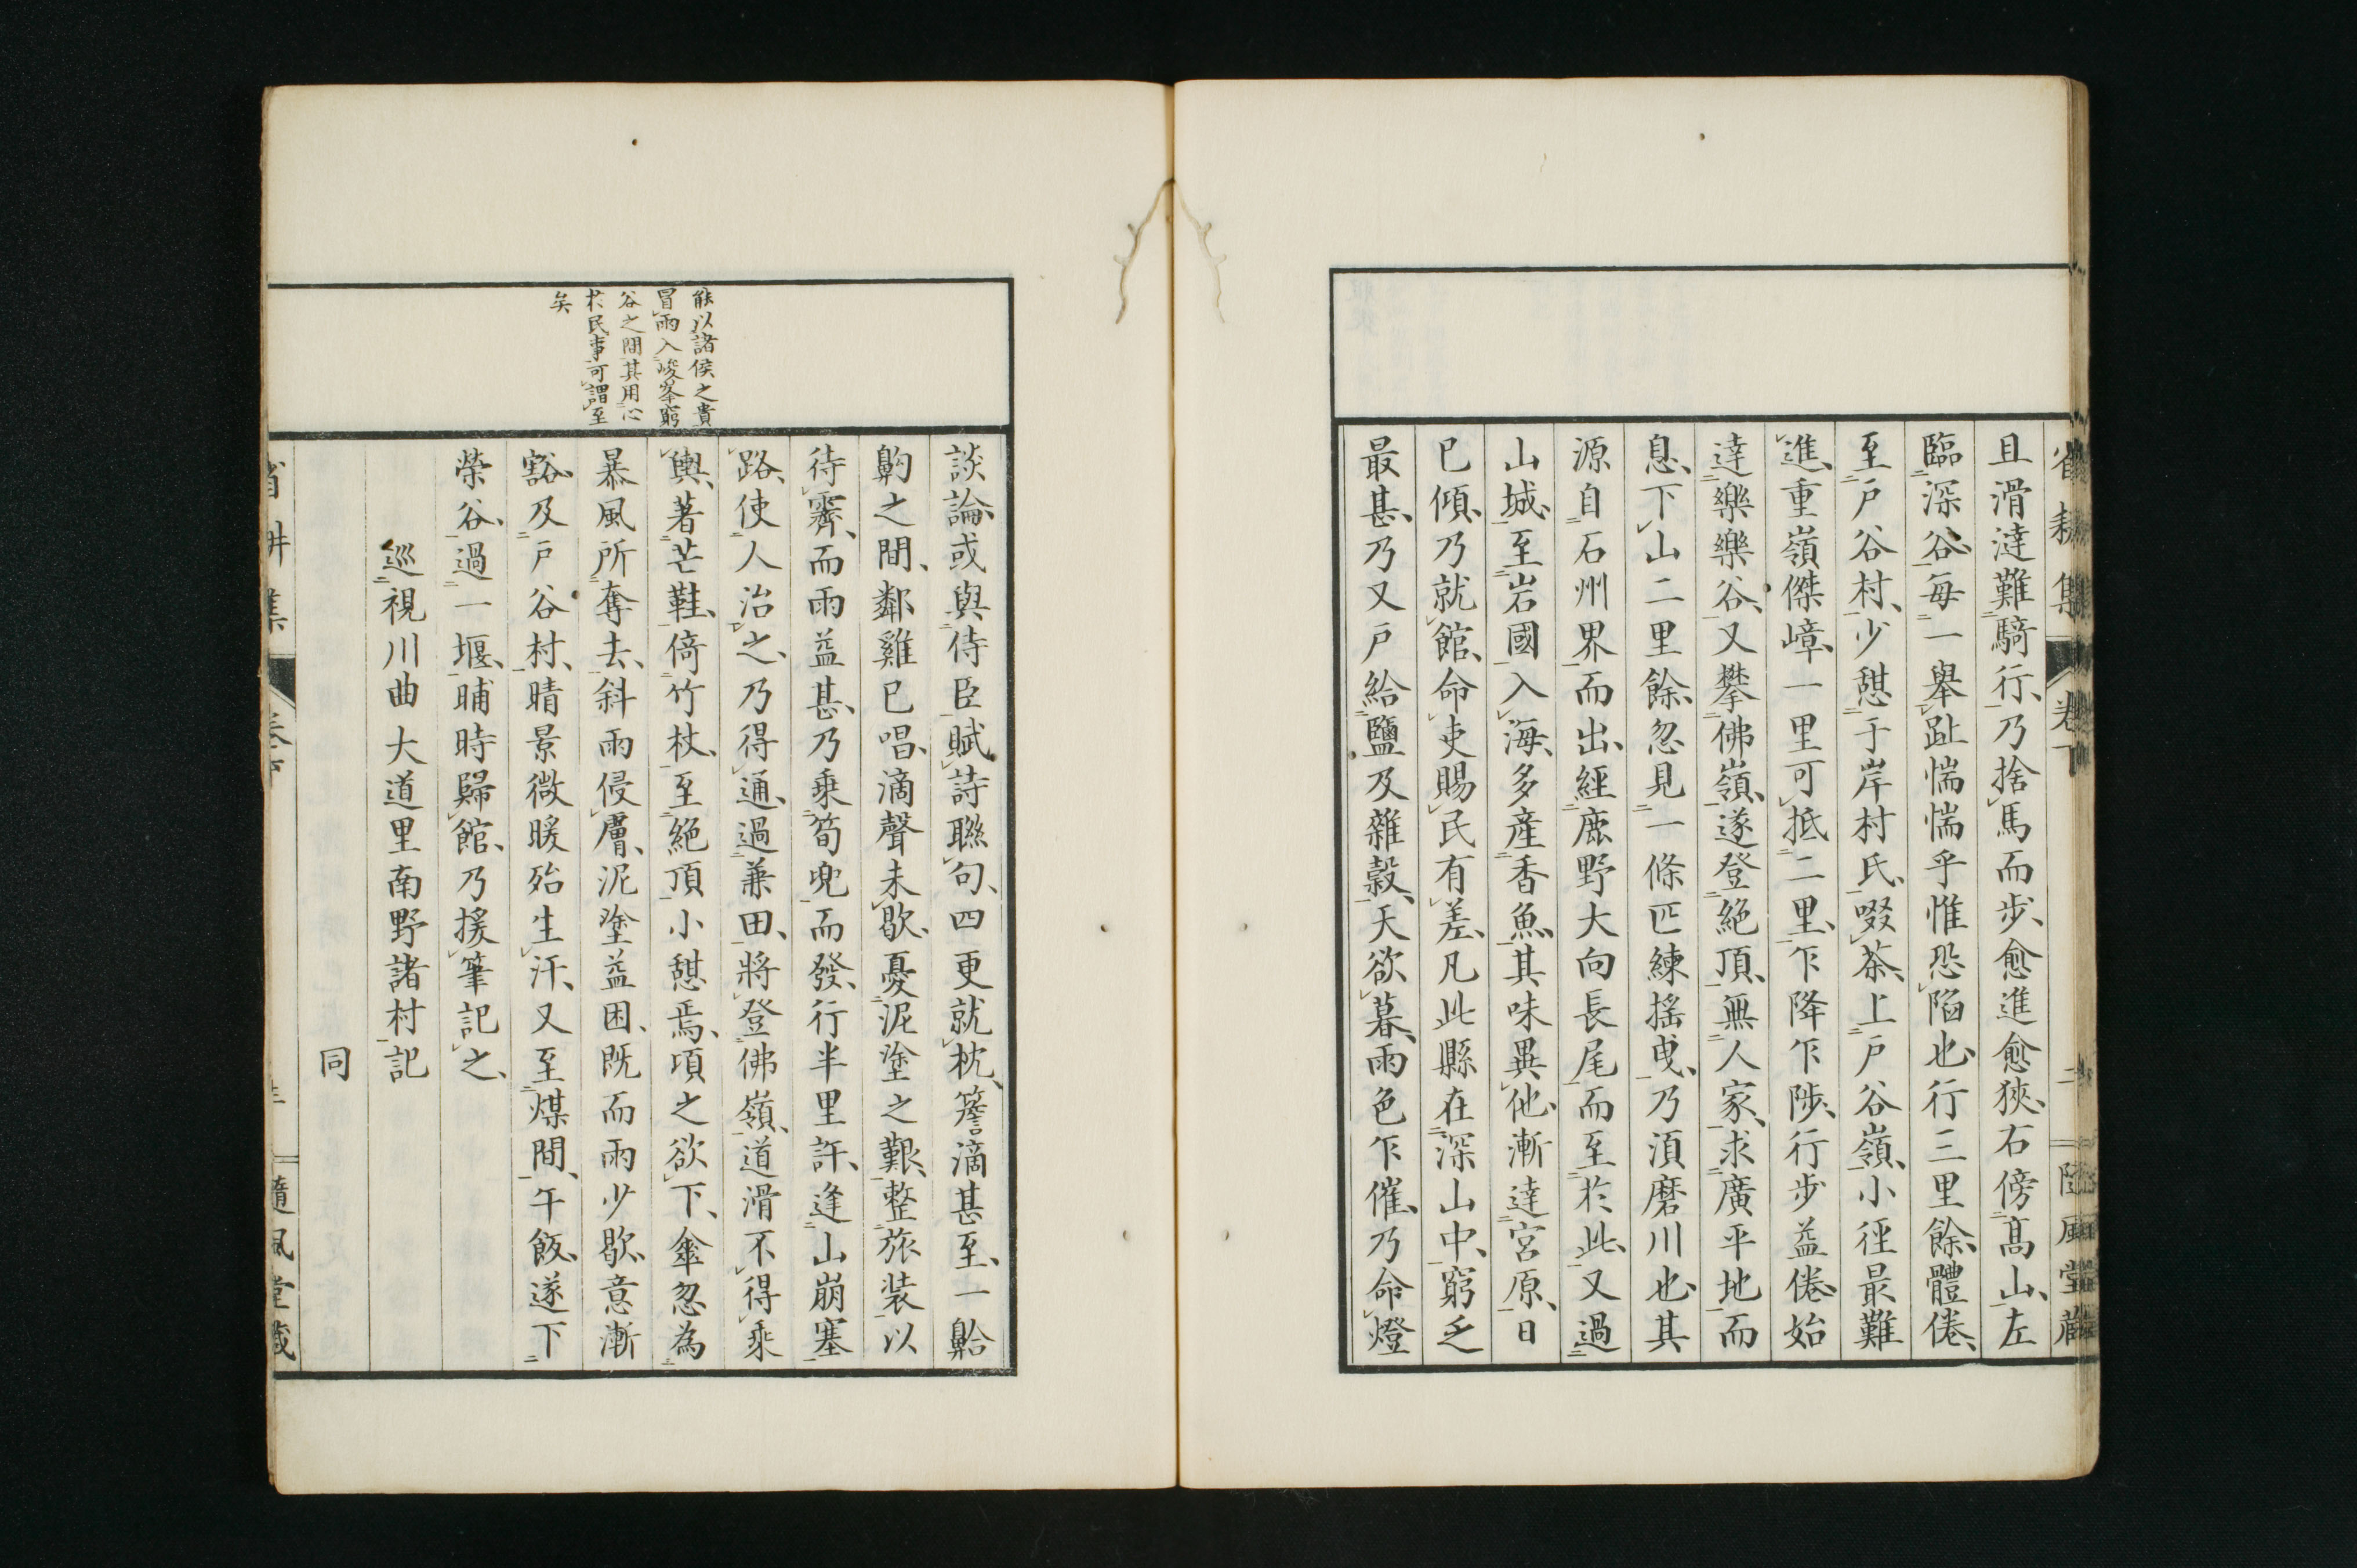 省耕集 卷下 二 隨風堂藏
且滑澾難騎行、乃捨馬而步、愈進愈狹、右傍高山、左
臨深谷、每一舉趾惴惴乎惟恐陷也、行三里餘、體倦、
至戶谷村、少憩于岸村氏、啜茶、上戶谷嶺、小徑最難
進、重嶺傑嶂、一里可抵二里、乍降乍陟、行步益倦、始
達樂樂谷、又攀佛嶺、遂登絕頂、無人家、求廣平地而
息、下山二里餘、忽見一條匹練搖曳、乃須磨川也、其
源自石州界而出、經鹿野大向長尾而至於此、又過
山城、至岩國入海、多產香魚、其味異他、漸達宮原、日
已傾、乃就館、命吏賜民有差、凡此縣在深山中、窮乏
最甚、乃又戶給鹽及雜穀、天欲暮、雨色乍催、乃命燈
能以諸侯之貴
冒雨入峻峯窮
谷之間其用心
於民事可謂至
矣
談論、或與侍臣賦詩聯句、四更就枕、簷滴甚至、一齁
齁之間、鄰雞已唱、滴聲未歇、憂泥塗之艱、整旅裝以
待霽、而雨益甚、乃乘筍兜而發、行半里許、逢山崩塞
路、使人治之、乃得通、過兼田、將登佛嶺、道滑不得乘
輿、著芒鞋、倚竹杖、至絕頂小憩焉、頃之欲下、傘忽為
暴風所奪去、斜雨侵膚、泥塗益困、既而雨少歇、意漸
豁、及戶谷村、晴景微暖殆生汗、又至煤間、午飯、遂下
榮谷、過一堰、晡時歸館、乃援筆記之、
巡視川曲大道里南野諸村記
同
省耕集 卷下 隨風堂藏